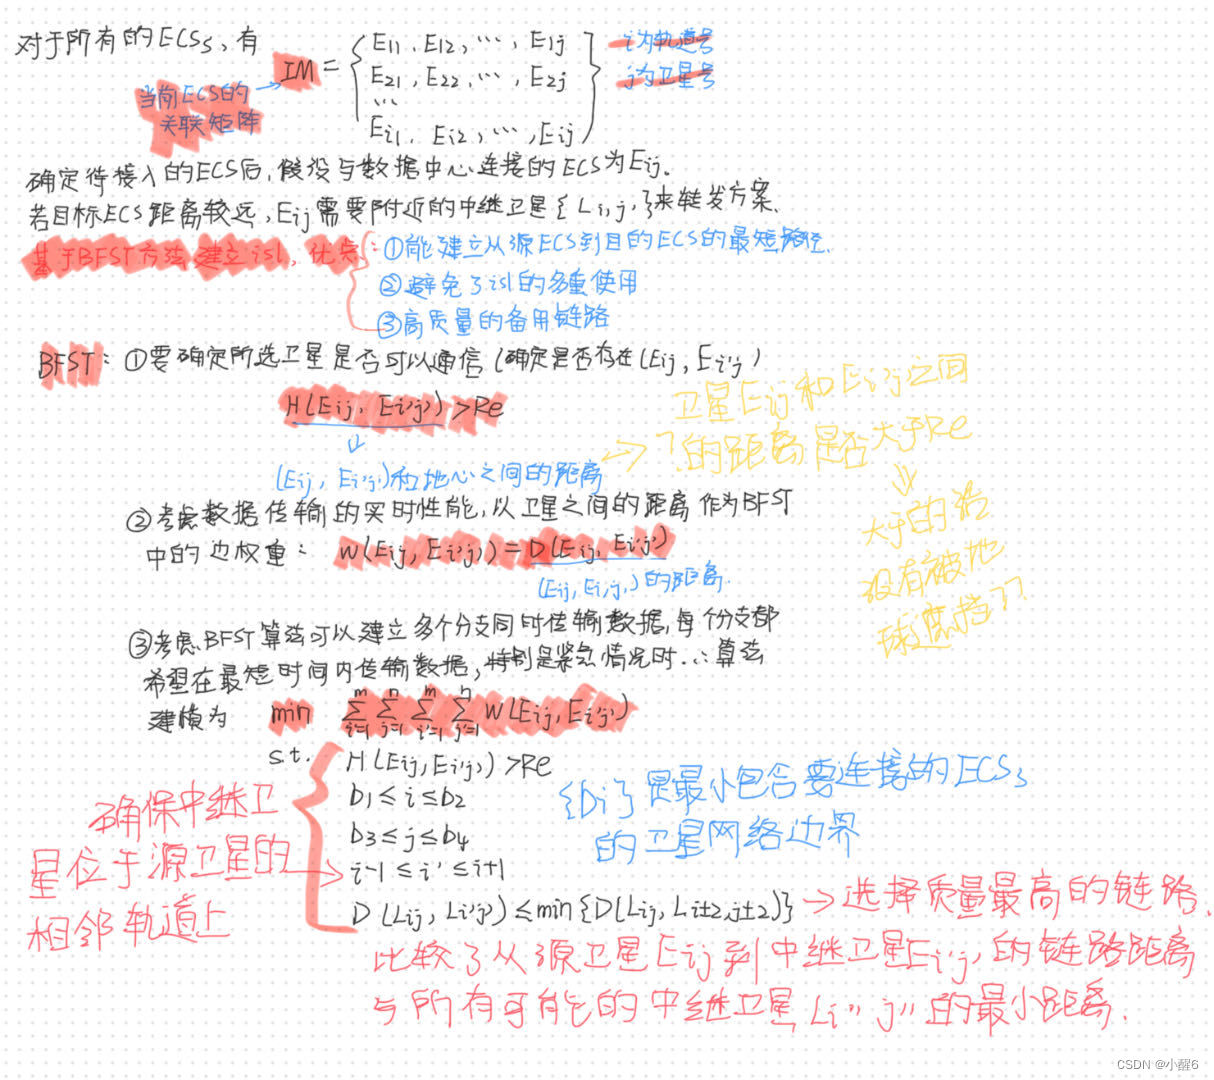 对于所有的ECSs,有
IM = { E11、E12,…,E1j
E21、E22,…,E2j
…
Ei1、Ei2,…,Eij }
i为轨道号
j为卫星号
当前ECS的
关联矩阵
确定待接入的ECS后,假设与数据中心连接的ECS为Eij。
若目标ECS距离较远,Eij需要附近的中继卫星{Li,j,}来转发方案.
基于BFST方法建立isl,优点:
①能建立从源ECS到目的ECS的最短路径.
②避免了isl的多重使用
③高质量的备用链路
BFST:①要确定所选卫星是否可以通信(确定是否存在(Eij,Ei'j')
H(Eij,Ei'j')>Re
(Eij,Ei'j')和地心之间的距离
卫星Eij和Ei'j'之间
?的距离是否大于Re
大于的话
没有被地
球遮挡??
②考虑数据传输的实时性能,以卫星之间的距离作为BFST
中的边权重:W(Eij,Ei'j')=D(Eij,Ei'j')
(Eij,Ei'j')的距离.
③考虑BFST算法可以建立多个分支同时传输数据,每个分支都
希望在最短时间内传输数据,特别是紧急情况时.∴算法
建模为 min ∑i=1m ∑j=1n ∑i'=1m ∑j'=1n W(Eij,Ei'j')
s.t. H(Eij,Ei'j')>Re
b1≤i≤b2
b3≤j≤b4
i-1≤i'≤i+1
D(Lij,Li'j')≤min{D(Lij,Li±2,j±2)}
{bi}是最小包含要连接的ECSs
的卫星网络边界
确保中继卫
星位于源卫星的
相邻轨道上
→选择质量最高的链路.
比较了从源卫星Eij到中继卫星Ei'j'的链路距离
与所有可能的中继卫星Li''j''的最小距离.
CSDN @小醒6